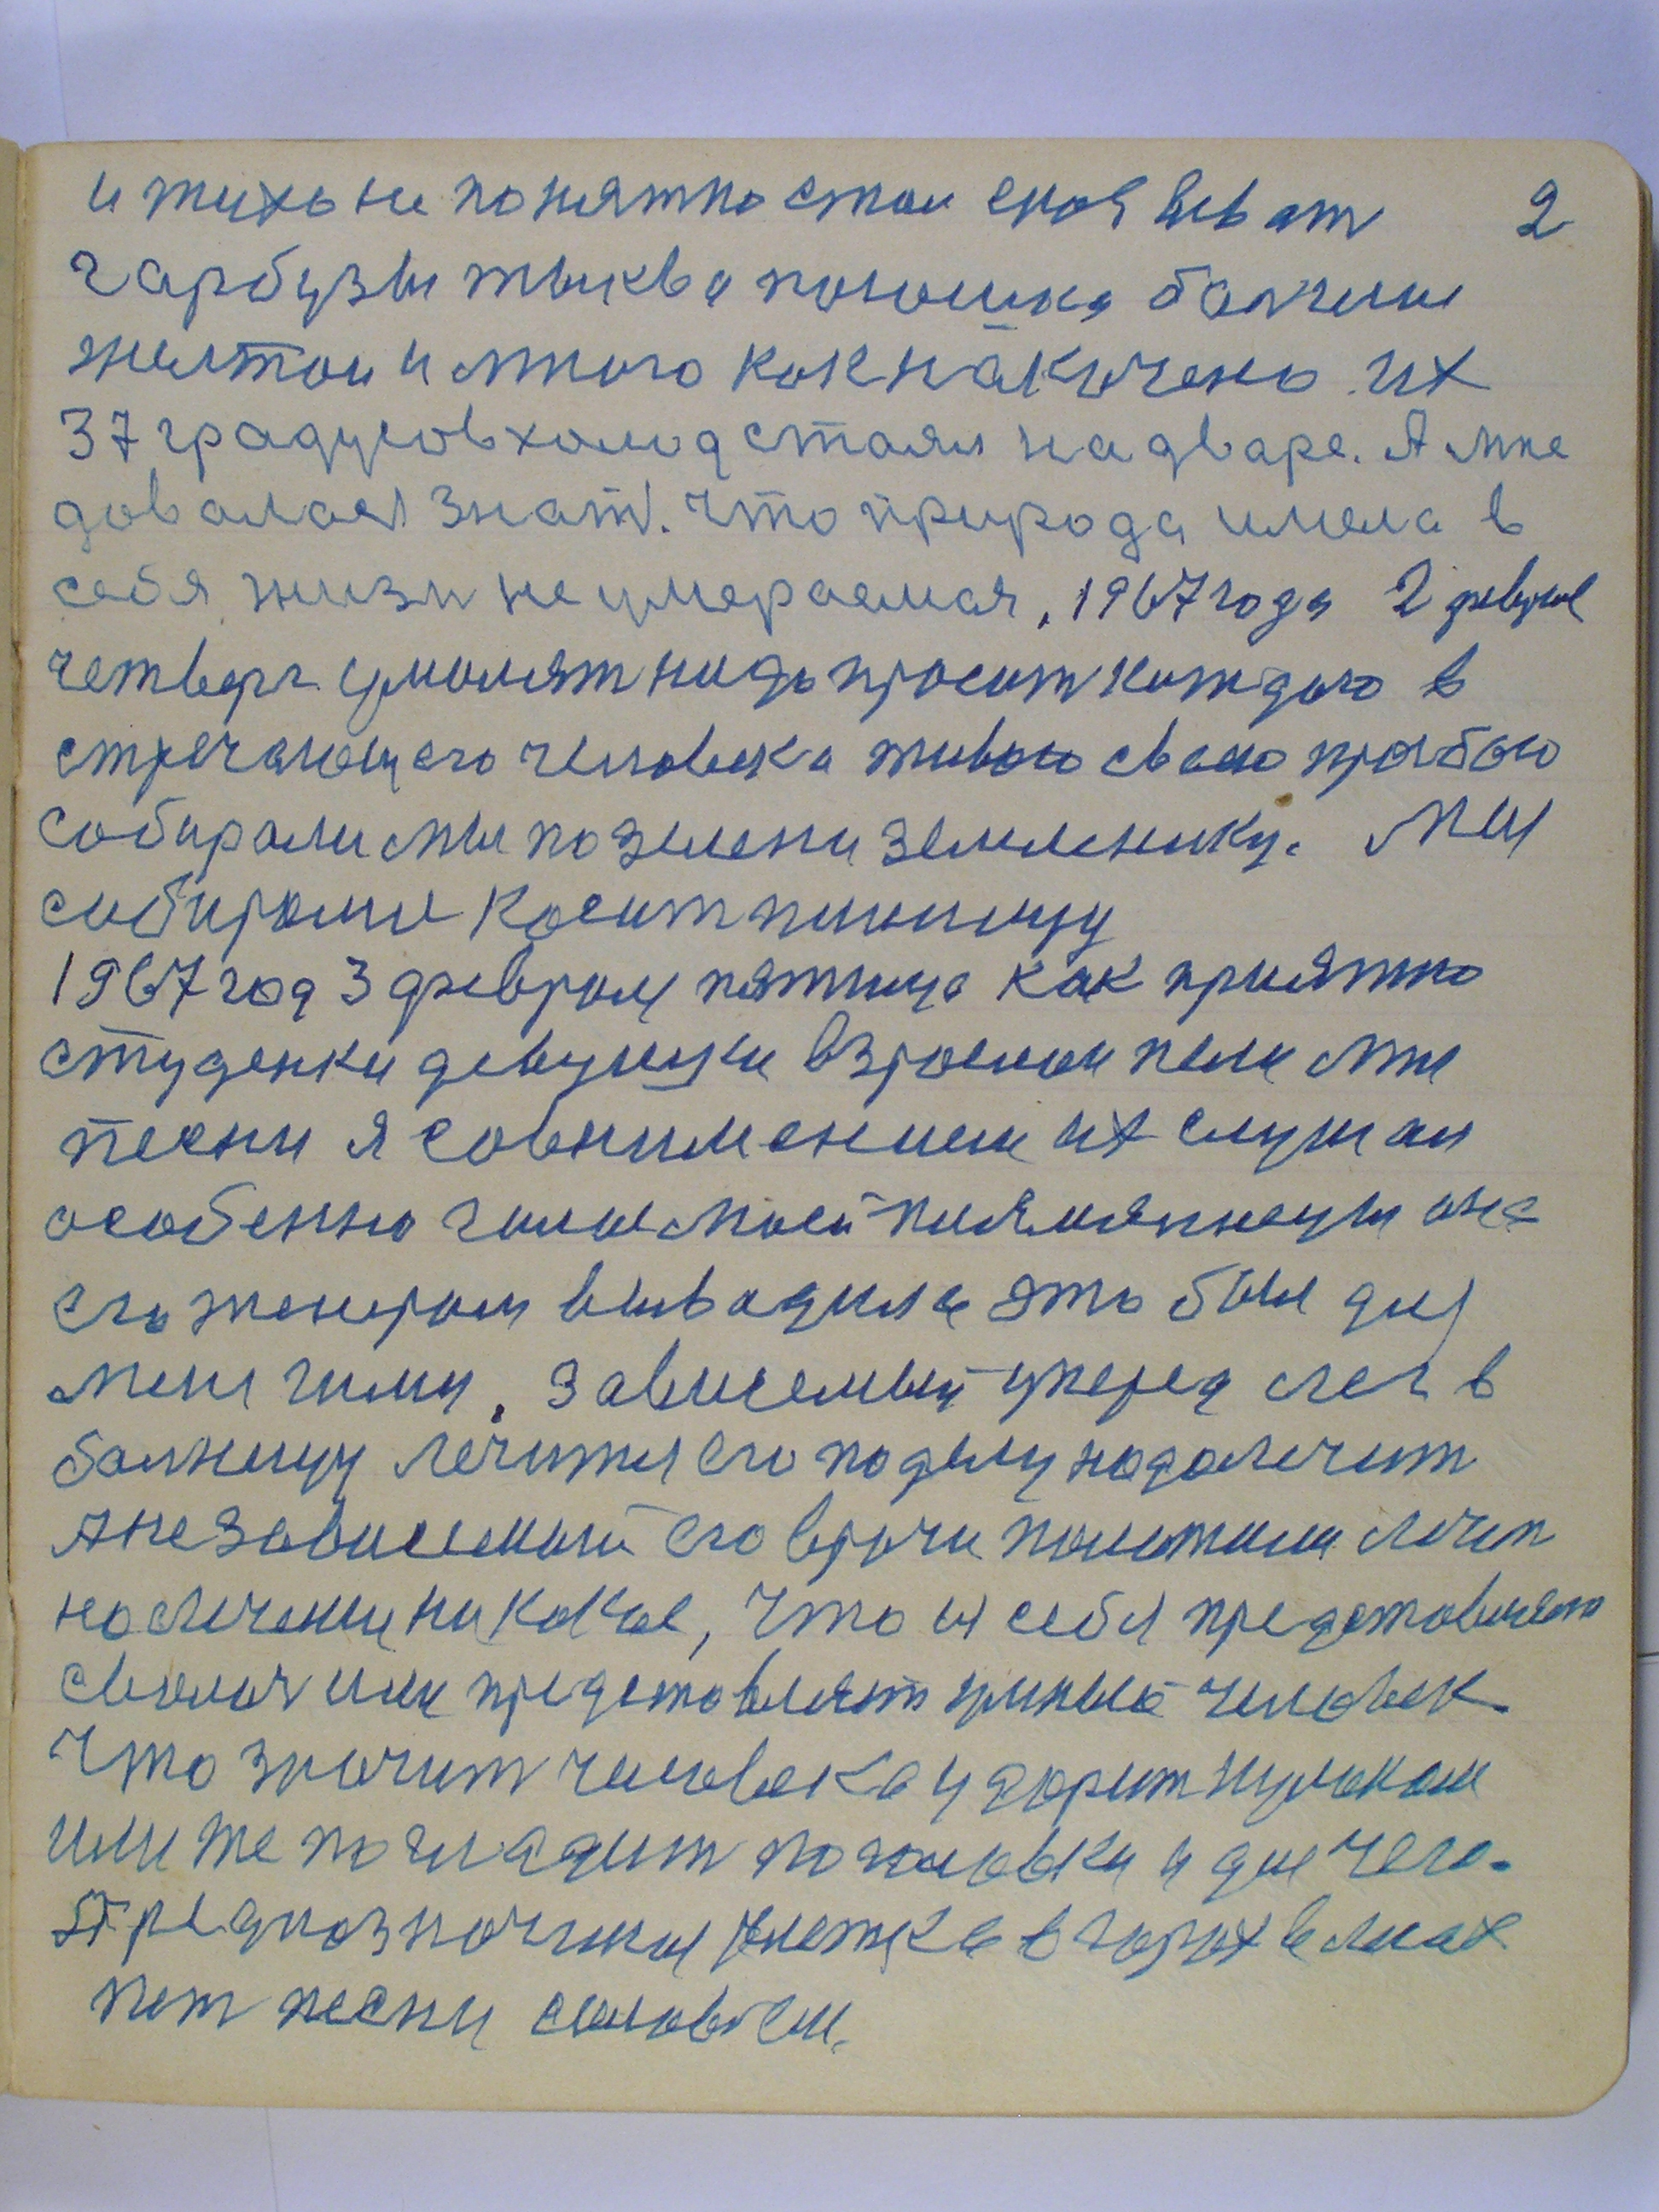 и тихо не понятно стал 2
гарбузы тыква польшка болшие
желтои и много как накичено их
37 градусов холод стоял на дваре. А мне
довалося знат. Что природа имела в
себя жизн не умераемая. 1967 года 2 февраля
четверг умолят надо просит каждого в
стречающего человека живого своею прозбою
собирали мы по зелени земленику. Мы
собирали косит пшиницу
1967 год 3 февраля пятница как приятно
студенки девушки взрослои пели мне
песни я со внимением их слушал
особенно голос моей она
его жанром выводила это был для
мени гимн. Зависемый уперед лег в
болницу лечится его по делу надо лечит
А независемый его врачи положили лечит
но лечения никокое, Что из себя представляет
сволоч или представляет умный человек.
Что значит человека ударит кулаком
или же погладит по головки и для чего.
Предназначения в горах в лисах
пет песни соловьем.